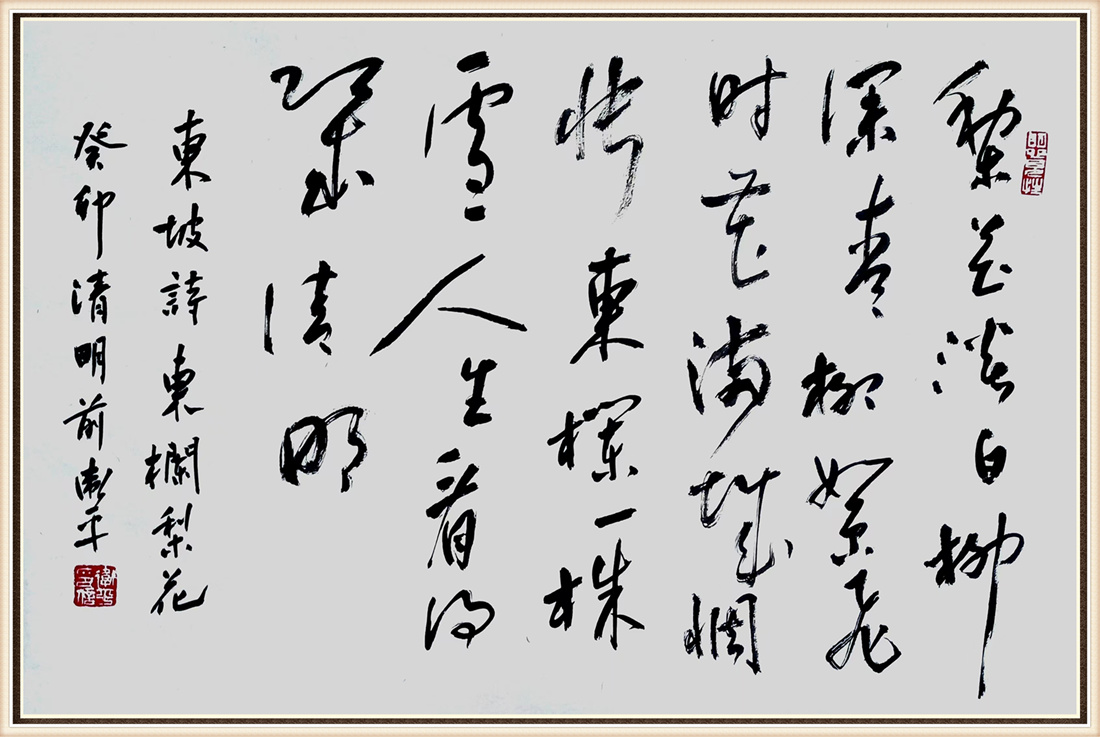 梨花淡白柳
深青柳絮飛
时花滿城惆
悵東欄一株
雪人生看得
幾清明
東坡詩東欄梨花
癸卯清明前衛平
衛平印信